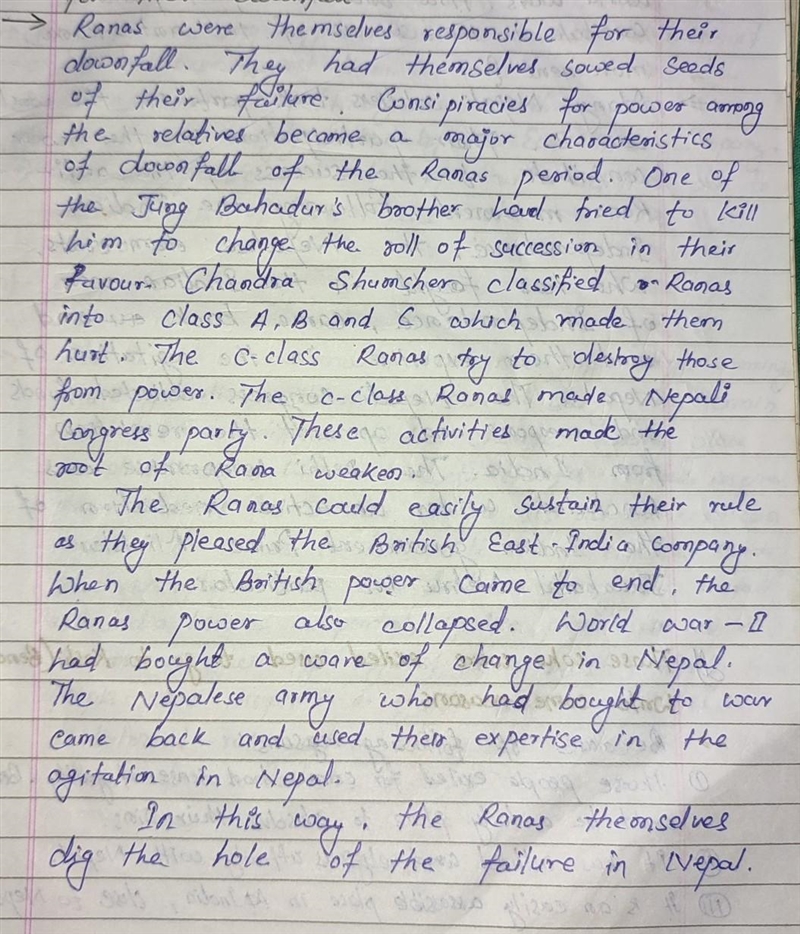 → Ranas were themselves responsible for their
downfall. They had themselves sowed seeds
of their failure. Consipiracies for power among
the relatives became a major characteristics
of downfall of the Ranas period. One of
the Jung Bahadur's brother had tried to kill
him to change the roll of succession in their
favour. Chandra Shumsher classified Ranas
into class A, B and C which made them
hurt. The C-class Ranas try to destroy those
from power. The C-class Ranas made Nepali
Congress party. These activities made the
root of Rana weaken.
The Ranas could easily sustain their rule
as they pleased the British East-India Company.
When the British power came to end, the
Ranas power also collapsed. World war-II
had bought a wave of change in Nepal.
The Nepalese army who had bought to war
came back and used their expertise in the
agitation in Nepal.
In this way, the Ranas themselves
dig the hole of the failure in Nepal.